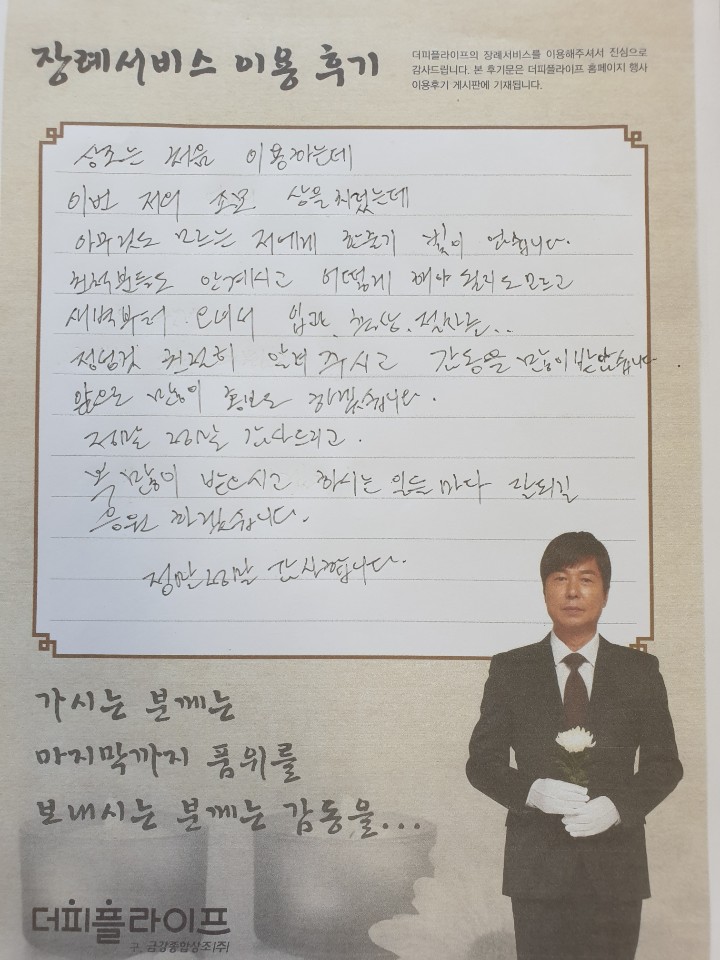 장례서비스 이용 후기
더피플라이프의 장례서비스를 이용해주셔서 진심으로
감사드립니다. 본 후기문은 더피플라이프 홈페이지 행사
이용후기 게시판에 기재됩니다.
상조는 처음 이용하는데
이번 저의 조모 상을 치렀는데
아무것도 모르는 저에게 큰 힘이 됐습니다.
친척분들도 안계시고 어떻게 해야 될지도 모르고
새벽부터 오셔서 입관, 천상, 절차를..
정성껏 친절히 알려 주시고 감동을 많이 받았습니다
앞으로 많이 홍보도 하겠습니다.
정말 정말 감사드리고.
복 많이 받으시고 하시는 일들 마다 잘되길
응원 하겠습니다.
정말 정말 감사합니다.
가시는 분께는
마지막까지 품위를
보내시는 분께는 감동을...
더피플라이프
구. 금강종합상조(주)